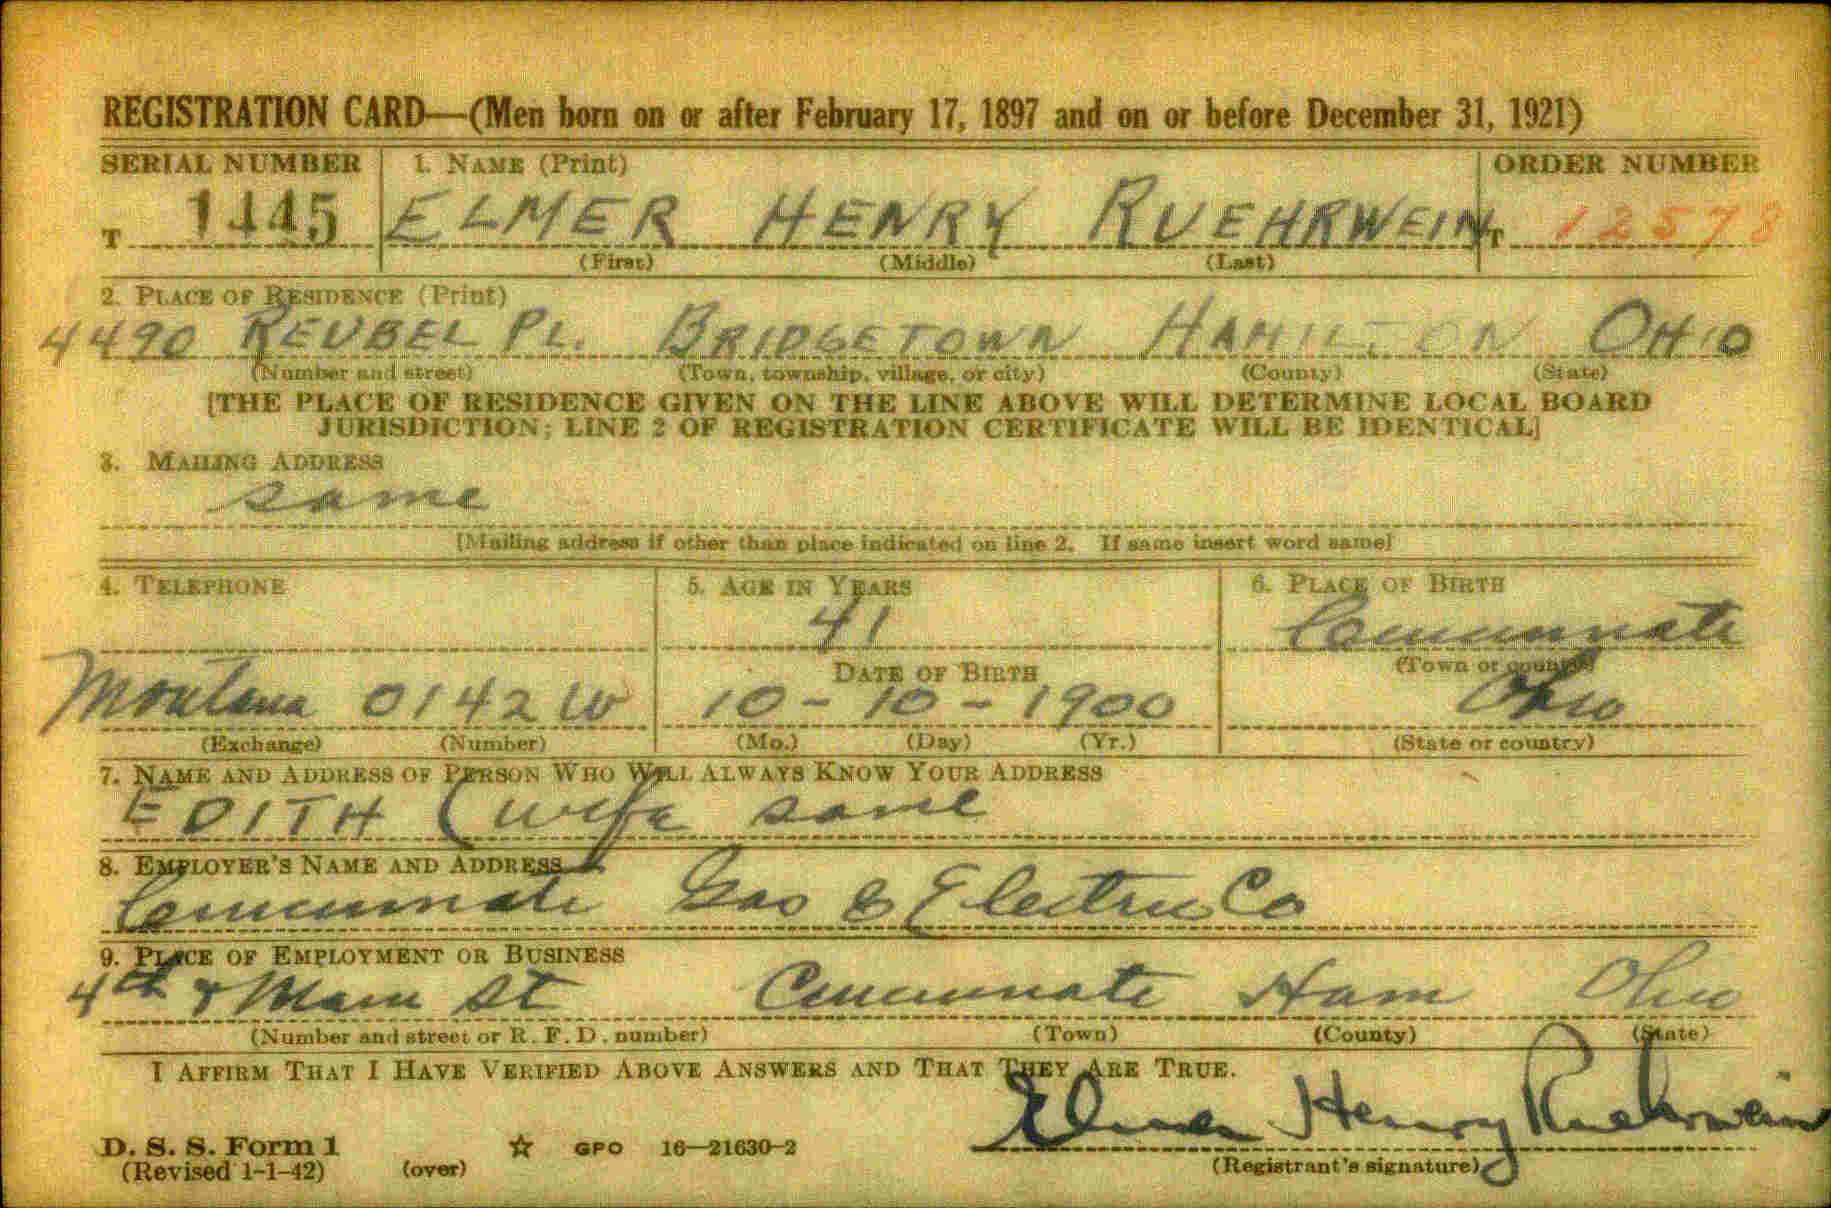 REGISTRATION CARD—(Men born on or after February 17, 1897 and on or before December 31, 1921)
SERIAL NUMBER 1. NAME (Print) ORDER NUMBER
T 1445 ELMER HENRY RUEHRWEIN T 12578
(First) (Middle) (Last)
2. PLACE OF RESIDENCE (Print)
4490 REUBEL PL. BRIDGETOWN HAMILTON OHIO
(Number and street) (Town, township, village, or city) (County) (State)
[THE PLACE OF RESIDENCE GIVEN ON THE LINE ABOVE WILL DETERMINE LOCAL BOARD
JURISDICTION; LINE 2 OF REGISTRATION CERTIFICATE WILL BE IDENTICAL]
3. MAILING ADDRESS
same
[Mailing address if other than place indicated on line 2. If same insert word same]
4. TELEPHONE 5. AGE IN YEARS 6. PLACE OF BIRTH
41 Cincinnati
DATE OF BIRTH (Town or county)
Montana 0142 W 10-10-1900 Ohio
(Exchange) (Number) (Mo.) (Day) (Yr.) (State or country)
7. NAME AND ADDRESS OF PERSON WHO WILL ALWAYS KNOW YOUR ADDRESS
EDITH (wife same
8. EMPLOYER'S NAME AND ADDRESS
Cincinnati Gas & Electric Co
9. PLACE OF EMPLOYMENT OR BUSINESS
4th & Main St Cincinnati Ham Ohio
(Number and street or R. F. D. number) (Town) (County) (State)
I AFFIRM THAT I HAVE VERIFIED ABOVE ANSWERS AND THAT THEY ARE TRUE.
Elmer Henry Ruehrwein
D. S. S. Form 1 ☆ GPO 16—21630-2
(Revised 1-1-42) (over) (Registrant's signature)